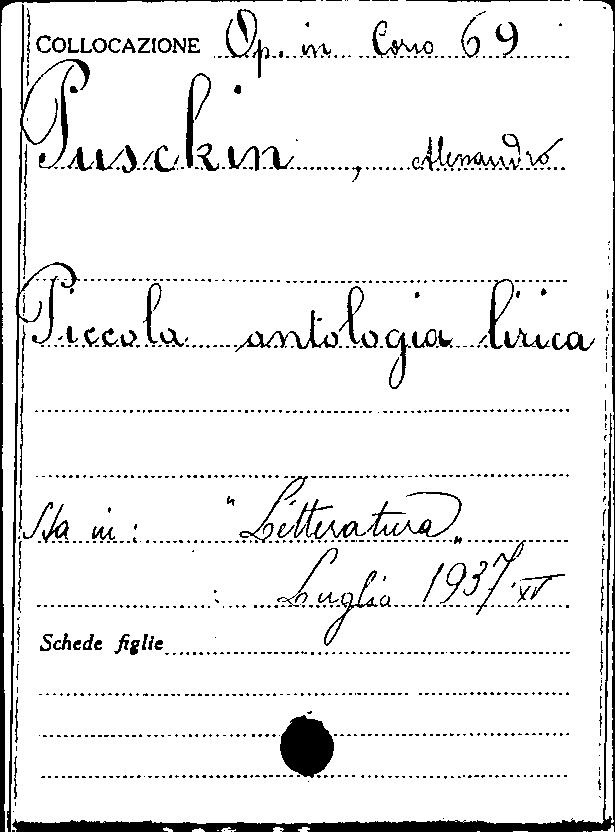 COLLOCAZIONE Op. in Corso 69
Puschin, Alessandro
Piccola antologia lirica
Sta in: "Letteratura"
Luglio 1937 XV
Schede figlie